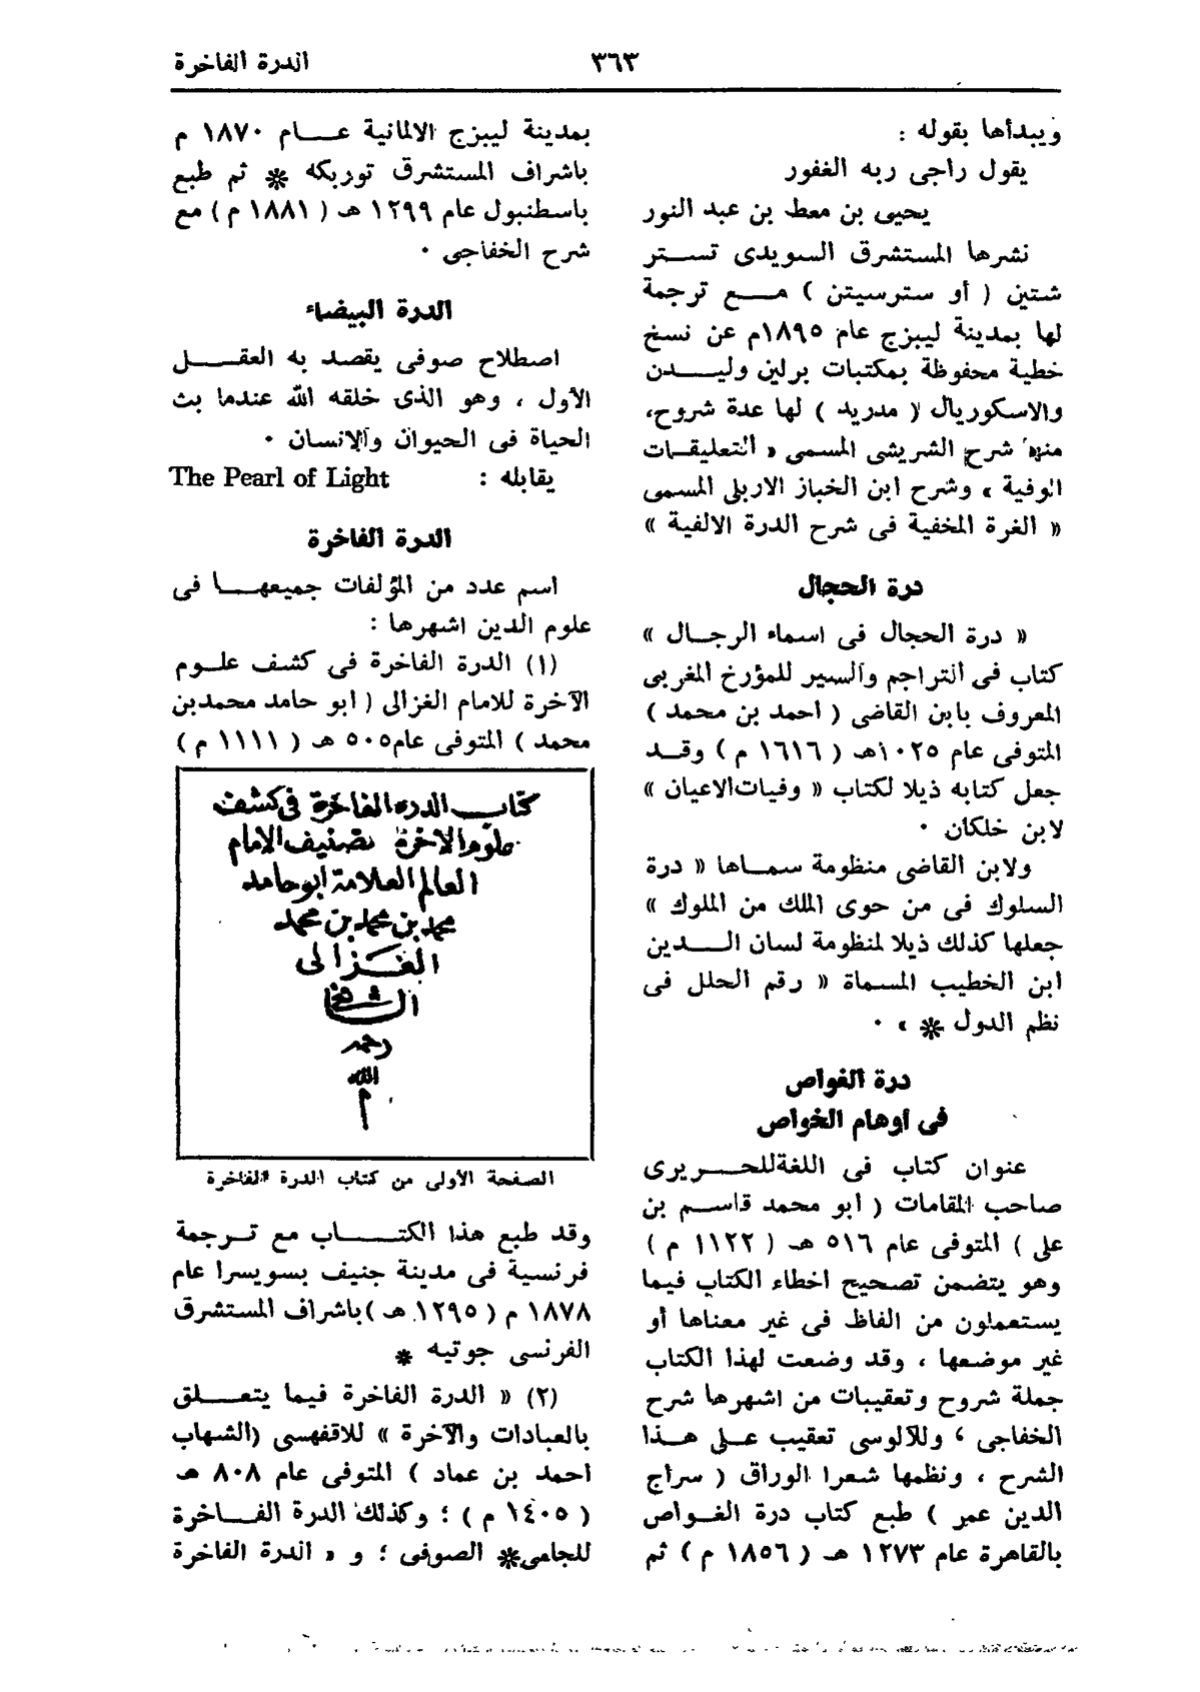 الدرة الفاخرة
٣٦٣
ويبدأها بقوله :
يقول راجى ربه الغفور
يحيى بن معط بن عبد النور
نشرها المستشرق السويدى تستر
شتين ( أو سترسيتن ) مع ترجمة
لها بمدينة ليبزج عام ١٨٩٥م عن نسخ
خطية محفوظة بمكتبات برلين وليدن
والاسكوريال ( مدريد ) لها عدة شروح،
منها شرح الشريشى المسمى « التعليقات
الوفية » وشرح ابن الخباز الاربلى المسمى
« الغرة المخفية فى شرح الدرة الالفية »
درة الحجال
« درة الحجال فى اسماء الرجال »
كتاب فى التراجم والسير للمؤرخ المغربى
المعروف بابن القاضى ( أحمد بن محمد )
المتوفى عام ١٠٢٥هـ ( ١٦١٦ م ) وقد
جعل كتابه ذيلا لكتاب « وفيات الاعيان »
لابن خلكان ٠
ولابن القاضى منظومة سماها « درة
السلوك فى من حوى الملك من الملوك »
جعلها كذلك ذيلا لمنظومة لسان الدين
ابن الخطيب المسماة « رقم الحلل فى
نظم الدول * » ٠
درة الغواص
فى أوهام الخواص
عنوان كتاب فى اللغة للحريرى
صاحب المقامات ( أبو محمد قاسم بن
على ) المتوفى عام ٥١٦ هـ ( ١١٢٢ م )
وهو يتضمن تصحيح اخطاء الكتاب فيما
يستعملون من الفاظ فى غير معناها أو
غير موضعها ، وقد وضعت لهذا الكتاب
جملة شروح وتعقيبات من اشهرها شرح
الخفاجى ، وللآلوسى تعقيب على هذا
الشرح ، ونظمها شعرا الوراق ( سراج
الدين عمر ) طبع كتاب درة الغواص
بالقاهرة عام ١٢٧٣ هـ ( ١٨٥٦ م ) ثم
بمدينة ليبزج الالمانية عام ١٨٧٠ م
باشراف المستشرق توربكه * ثم طبع
باسطنبول عام ١٢٩٩ هـ ( ١٨٨١ م ) مع
شرح الخفاجى ٠
الدرة البيضاء
اصطلاح صوفى يقصد به العقل
الأول ، وهو الذى خلقه الله عندما بث
الحياة فى الحيوان والانسان ٠
يقابله : The Pearl of Light
الدرة الفاخرة
اسم عدد من المؤلفات جميعها فى
علوم الدين اشهرها :
(١) الدرة الفاخرة فى كشف علوم
الآخرة للامام الغزالى ( أبو حامد محمد بن
محمد ) المتوفى عام ٥٠٥ هـ ( ١١١١ م )
كتاب الدره الفاخرة فى كشف
علوم الاخرة تصنيف الامام
العالم العلامة ابو حامد
محمد بن محمد بن محمد
الغزالى
رحمه
الله
م
الصفحة الأولى من كتاب الدرة الفاخرة
وقد طبع هذا الكتاب مع ترجمة
فرنسية فى مدينة جنيف بسويسرا عام
١٨٧٨ م ( ١٢٩٥ هـ ) باشراف المستشرق
الفرنسى جوتيه *
(٢) « الدرة الفاخرة فيما يتعلق
بالعبادات والآخرة » للاقفهسى (الشهاب
أحمد بن عماد ) المتوفى عام ٨٠٨ هـ
( ١٤٠٥ م ) ؛ وكذلك الدرة الفاخرة
للجامى* الصوفى ؛ و « الدرة الفاخرة